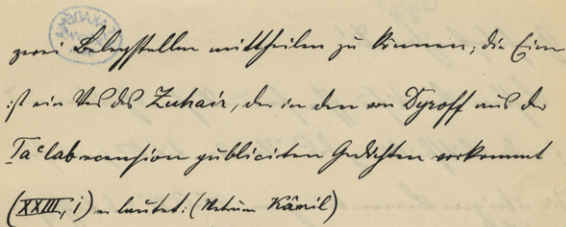 zwei Belegstellen mittheilen zu können; die Eine
ist ein Vers des Zuhair, der in den von Dyroff aus der
Taʿlabrecension publiciten Gedichten vorkommt
(XXIII, 1) er lautet: (Metrum Kâmil)